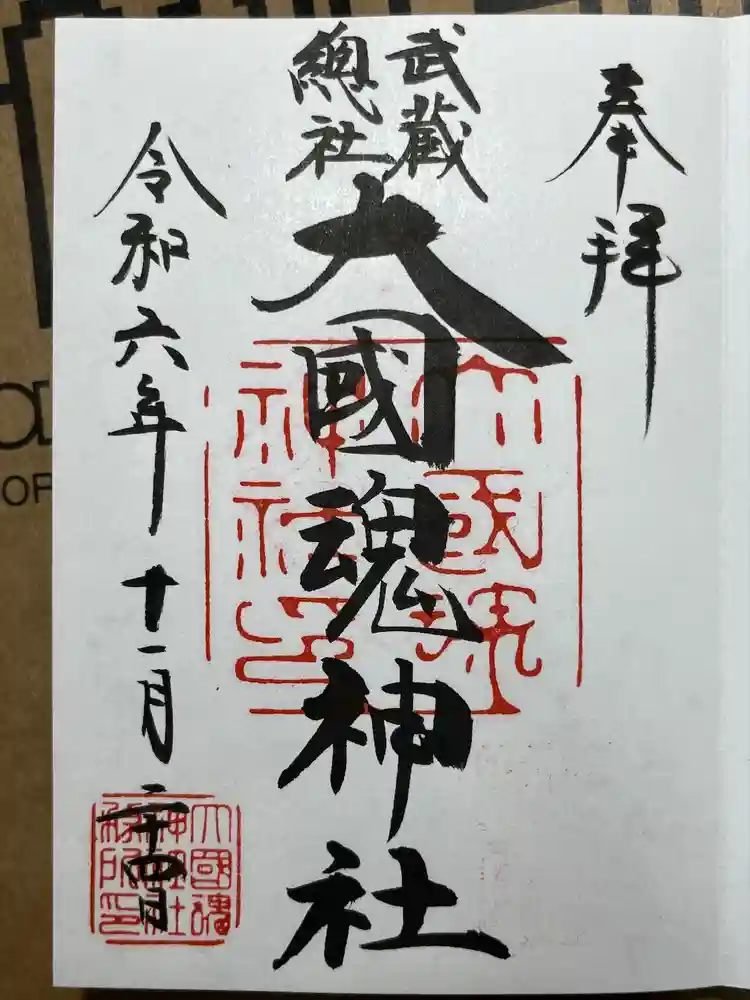 奉拝
武蔵
總社
大國魂神社
令和六年十一月二十四日
大國魂
神社印
大國魂
神社社
務所印